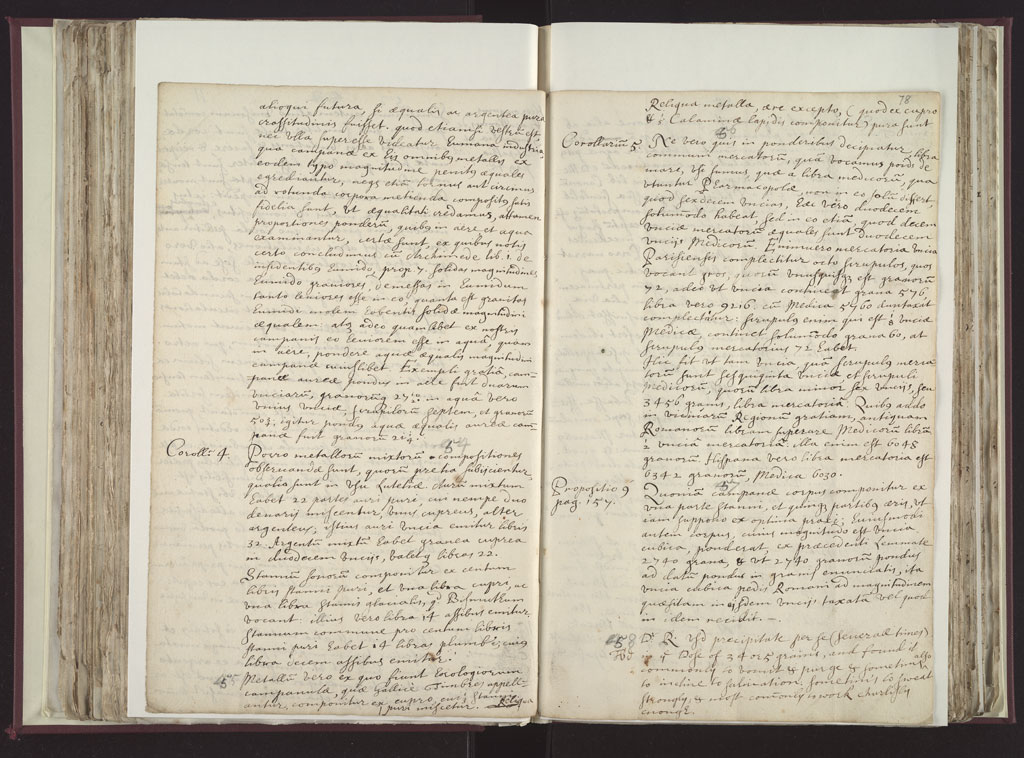 alioqui futura, si æqualis ac argentea puræ
crassitudinis fuisset. quod etiamsi destru est
nec vlla superesse videatur humana industria,
qua campanæ ex his omnibus metallis ex
eodem typo magnitudine penitus æquales
egrediantur, neqz etiā tornus aut circinus
ad rotunda corpora metienda compositus satis
fidelia sunt, vt æqualitati credamus, attamen
proportiones ponderū, quibus in aere et aqua
examinantur, certæ sunt, ex quibus notis
certo concludimus cū Archimede lib. 1. de
insidentibus humido, prop. 7. solidas magnitudines
humido graviores, demissas in humidum
tanto leniores esse in eo, quanta est gravitas
humidi molem habentis solidæ magnitudini
æqualem: atqz adeo quamlibet ex nostris
campanis eo leviorem esse in aqua, quam
in aere, pondere aquæ æqualis magnitudini
campanæ cuiuslibet. Exempli gratia, cam-
panæ aureæ pondus in aere sint duarum
vnciarū, granorūqz 27 in aqua vero
vnius vnciæ, scrupulorū septem, et granorū
503, igitur pondus aquæ æqualis aureæ cam-
panæ sunt granorū
54
Coroll: 4. Porro metallorū mixtorū compositiones
observandæ sunt, quorū pretia subiicientur
qualia sunt in vsu Lutetiæ. Aurū mixtum
habet 22 partes auri puri, cui nempe duo
denarii miscentur, vnus cupreus, alter
argenteus; istius auri vncia emitur libris
32. Argentū mixtū habet grana cuprea
in duodecim vncijs, valetqz libras 22.
Stannum sonorū componitur ex centum
libris stanni puri, et vna libra cupri, ac
vna libra stanni glacialis, qd Bismuthum
vocant: illius vero libra 14 assibus emitur.
Stannum commune pro centum libris
stanni puri habet 14 libras plumbi; cuius
libra decem assibus emitur.
55 Metallū vero ex quo fiunt horologiorum
campanulæ, quas Gallice Timbres appell-
antur, componitur ex cupro, cui stannū
puri miscetur. Reliqua
78
Reliqua metalla, ære excepto, (quod ex cupro
& Calaminæ lapidis componitur) pura sunt
56
Corollariū 5. Ne vero quis in ponderibus decipiatur, libra
communi mercatorū, quā vocamus poids de
marc, vsi sumus, quæ a libra medicorū, qua
vtuntur Pharmacopolæ, non in eo solū differt,
quod sexdecim vncias, hæc vero duodecim
solummodo habeat, sed in eo etiā, quod decem
vnciæ mercatorū æquales sunt duodecim
vncijs Medicorū. Enimvero mercatoria vncia
Parisiensis complectitur octo scrupulos, quos
vocant gros, quorū vnusquisqz est granorū
72, adeo vt vncia contineat grana 576
libra vero 9216: cū Medica 5760 duntaxat
complectatur: scrupulus enim qui est ⅛ vnciæ
Medicæ continet solummodo grana 60, at
scrupulus mercatorius 72 habet.
Hic fit vt tam vncia quā scrupulus merca
torū sint sesquiquinta vnciæ et scrupuli
Medicorū, quorū libra minor sex vncijs, seu
3456 granis, libra mercatoria. Quibus addo
in vicinarū Regionū gratiam, antiquam
Romanorū libram superare Medicorū librā
½ vnciā mercatoria: illa enim est 6048
granorū. Hispana vero libra mercatoria est
6342 granorū, Medica 6030.
57
Propositio 9
pag. 157.
Quoniā campanæ corpus componitur ex
vna parte stanni, et quinqz partibus æris, vt
iam suppono ex optima praxi; huiusmodi
autem corpus, cuius magnitudo est vncia
cubica, ponderat, ex præcedenti Lemmate
2740 grana, & vt 2740 granorū pondus
ad datū pondus in granis enunciatis, ita
vncia cubica pedis Romani ad magnitudinem
quæsitam in iisdem vncijs taxata vel quod
in idem recidit. —
58
Dr R. vsd precipitate per se (several times)
in ye Dose of 3 4 or 5 grains, and found it
commonly to vomit & purge & sometimes also
to incline to salivation. sometimes to sweat
strongly, & most commonly work churlishly
enough.